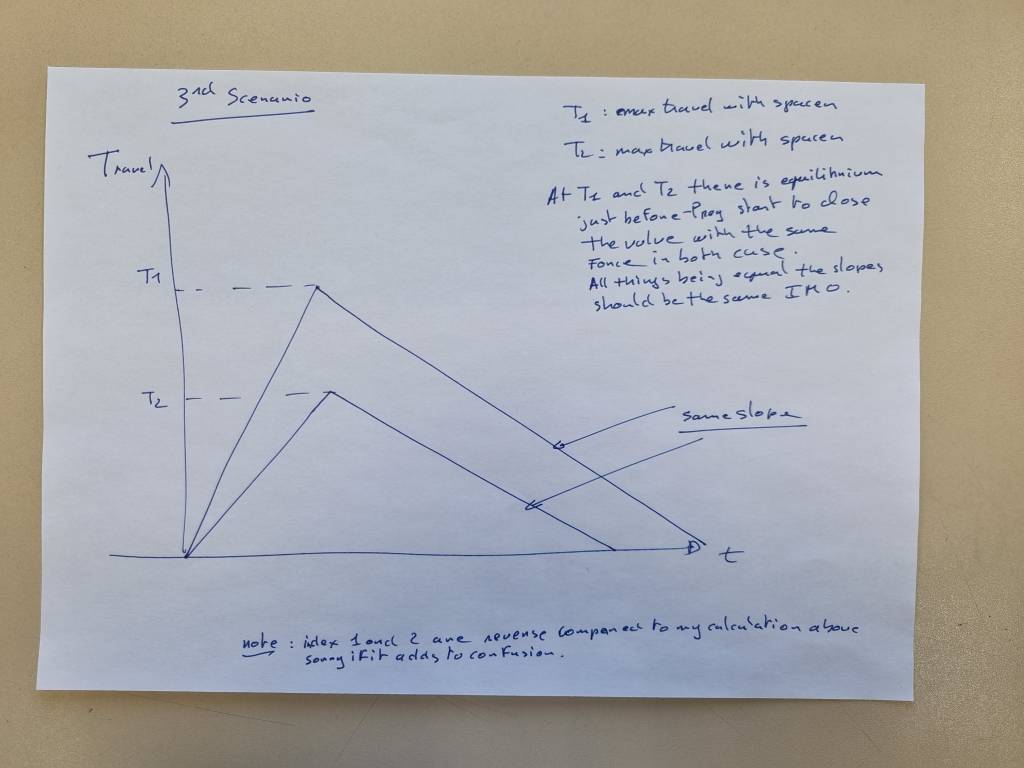 3rd Scenario
T1 : max travel with spacer
T2 : max travel with spacer
At T1 and T2 there is equilibrium
just before Prog start to close
the valve with the same
Force in both case.
All things being equal the slopes
should be the same IMO.
Travel
T1
T2
same slope
t
note : index 1 and 2 are reverse compared to my calculation above
sorry if it adds to confusion.